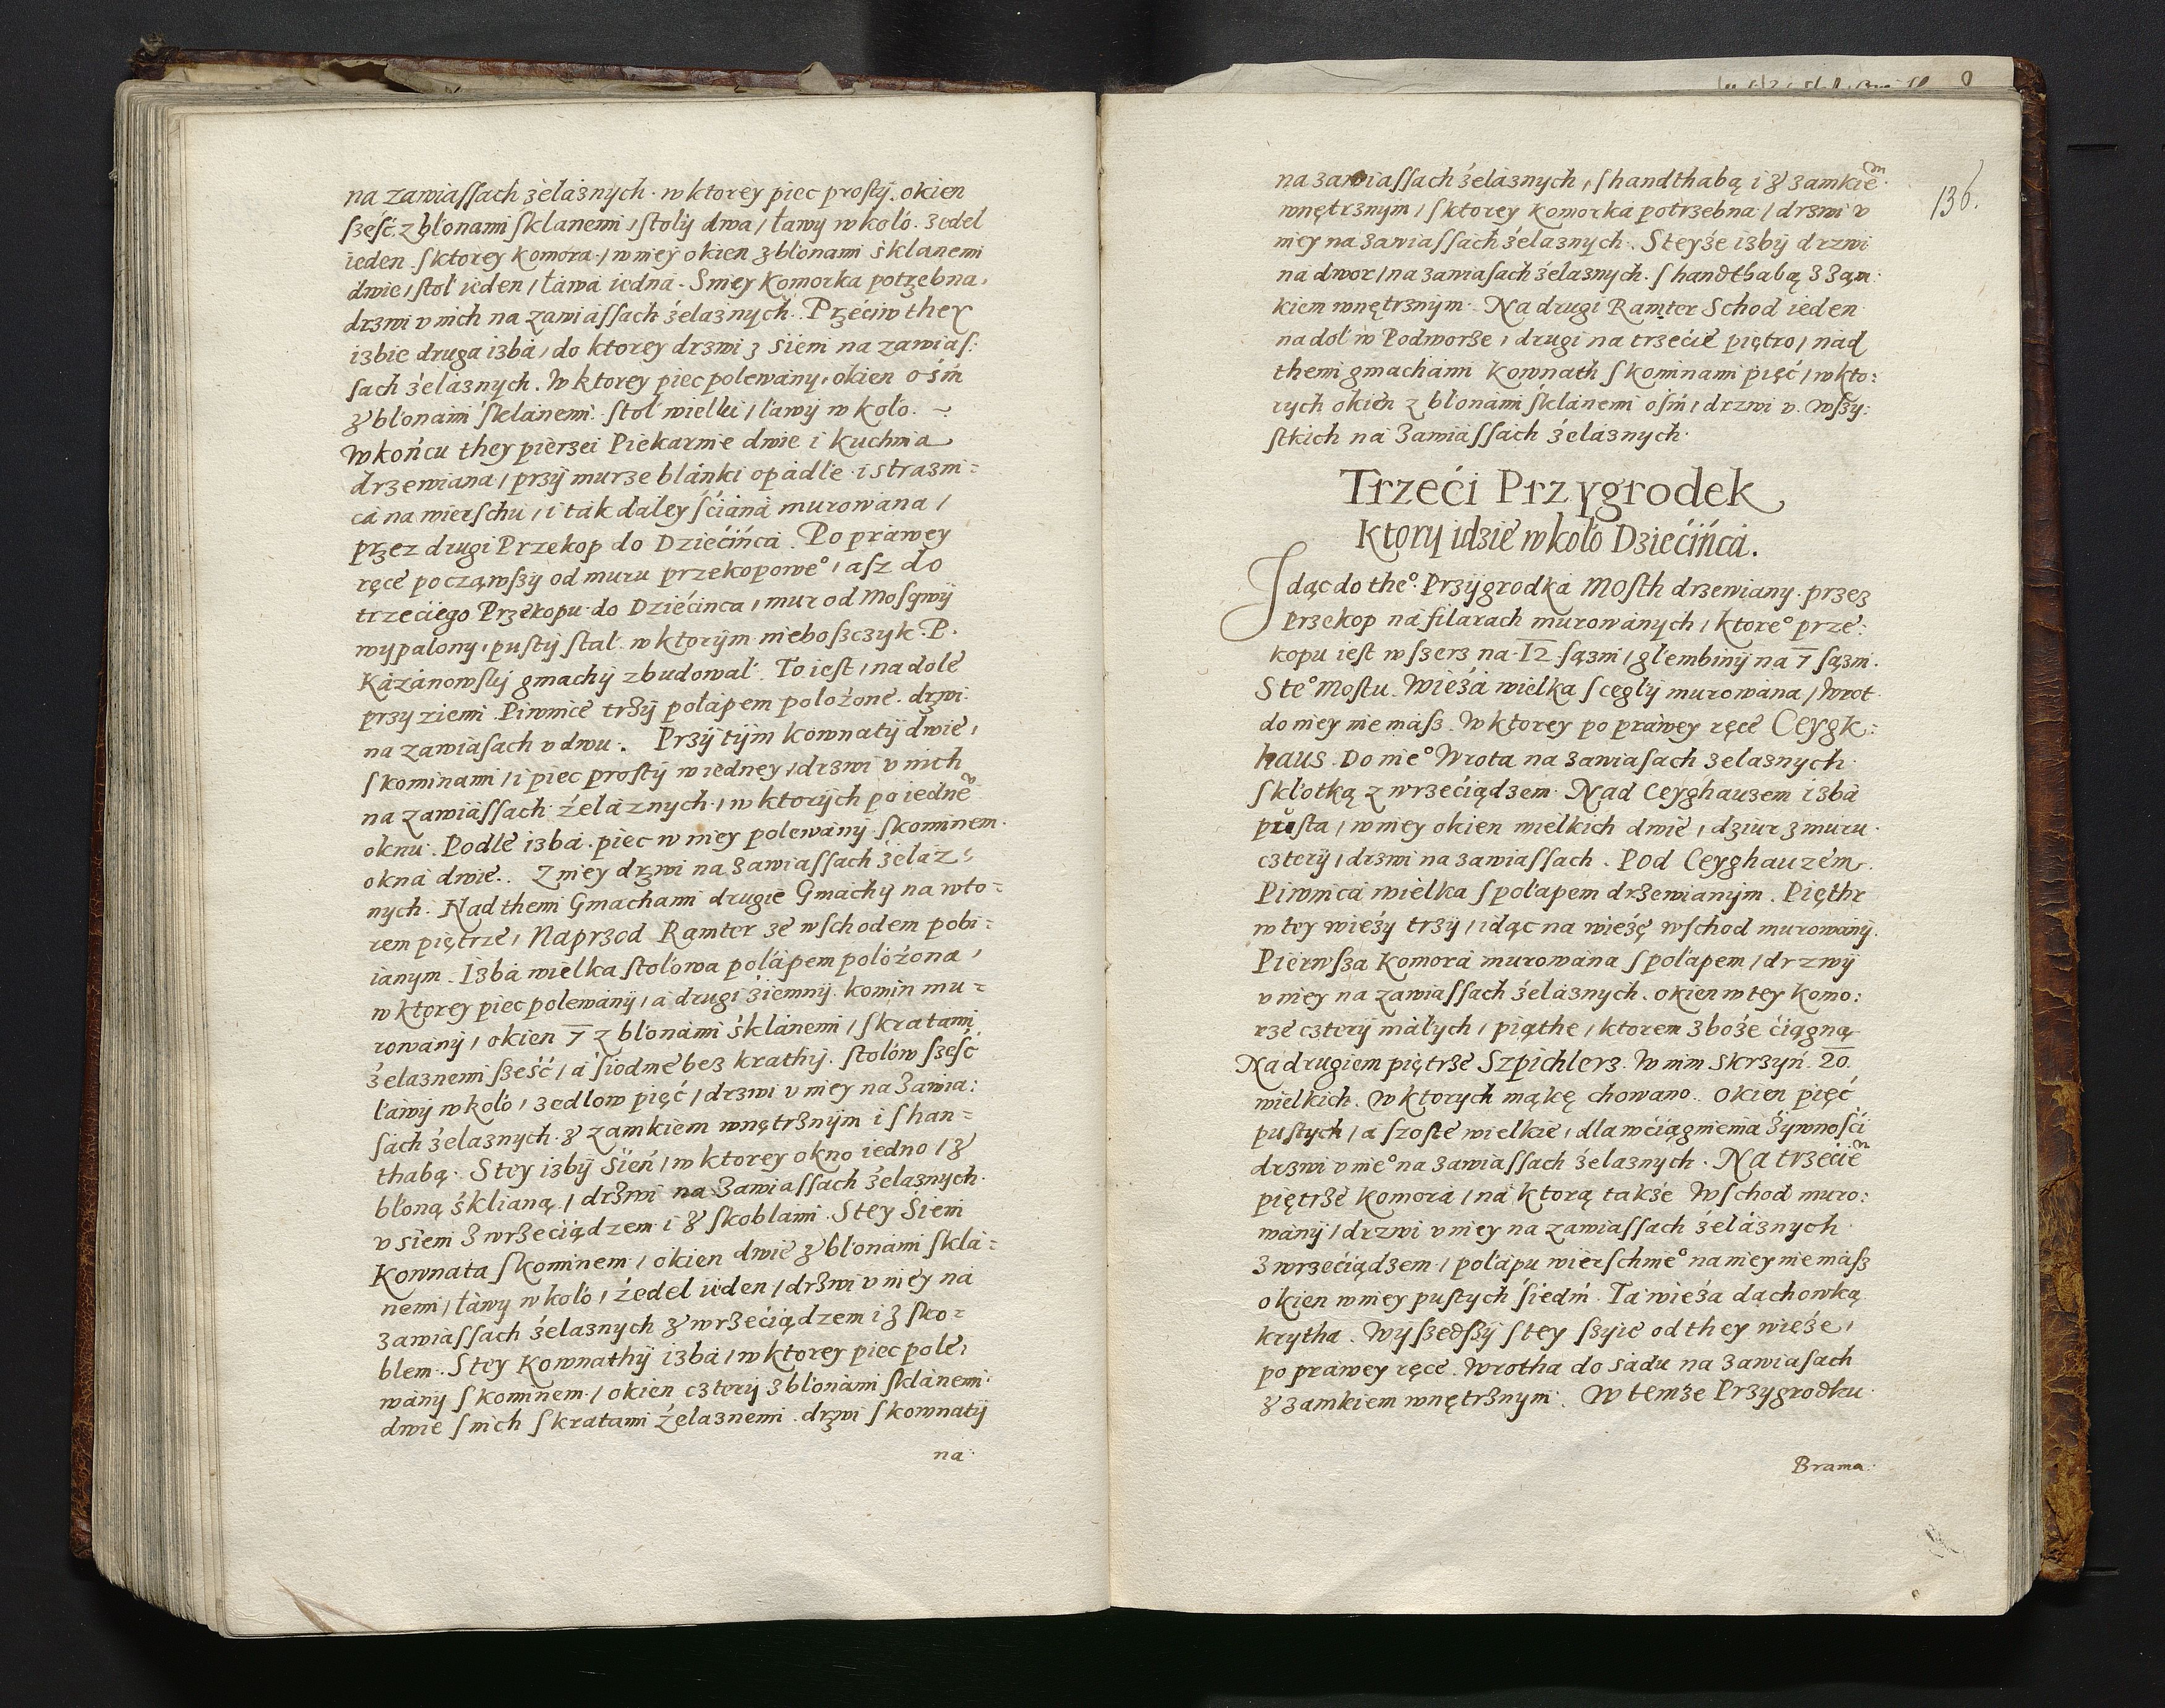 na zawiaſſach żelaznych. w ktorey piec proſty. okien
ſześć z błonami ſklanemi, ſtoły dwa, ławy wkoło. zedel
ieden ſ ktorey komora, w niey okien z błonami sklanemi
dwie, ſtoł ieden, ława iedna. S niey Komorka potrzebna,
drzwi v nich na zawiaſſach żelaznych. Przećiw they
izbie druga izba, do ktorey drzwi z sieni na zawiaſ:
ſach żelaznych. W ktorey piec polewany, okien ośḿ
z błonami ſklanemi. ſtoł wielki, ławy w koło.
W końcu they pierzei Piekarnie dwie i kuchnia
drzewiana, przy murze blanki opadłe i strazni=
ca na wierſchu, i tak daley śćiana murowana,
przez drugi Przekop do Dziećińca. Po prawey
ręce począwſzy od muru przekopoweº, aſz do
trzeciego Przekopu do Dziećinca, mur od Moſqwy
wypalony, puſty ſtał. w ktorym nieboſzczyk P.
Kazanowſky gmachy zbudował. To ieſt, na dole
przy ziemi Piwnice trzy połapem położone. drzwi
na zawiaſach v dwu. Przy tym kownaty dwie,
ſ kominami, i piec proſty w iedney, drzwi v nich
na zawiaſſach żelaznych, w ktorych po iedneͫ
oknu. Podle izba. piec w niey polewany ſkominem.
okna dwie. Z niey drzwi na zawiaſſach żelaz:
nych. Nad themi Gmachami drugie Gmachy na wto=
rem piętrze, Naprzod Ramter ze wſchodem pobi=
ianym. Izba wielka ſtołowa połapem położona,
w ktorey piec polewany, a drugi ziemny. komin mu=
rowany, okien 7 z błonami śklanemi, ſ kratami
żelaznemi ſześć, a śiodme bez krathy. ſtołow ſześć
ławy w koło, zedlow pięć, drzwi v niey na zawia:
ſach żelaznych. z zamkiem wnętrznym i ſ han=
thabą. S tey izby sień, w ktorey okno iedno, z
błoną śklianą, drzwi na zawiaſſach żelaznych.
v sieni z wrzeciądzem i z ſkoblami. S tey śieni
Kownata ſkominem, okien dwie z błonami ſkla=
nemi, ławy w koło, żedel ieden, drzwi v niey na
zawiaſſach żelaznych z wrzećiądzem i z ſko=
blem. S tey Kownathy izba, w ktorey piec pole,
wany ſ kominem, okien cztery z błonami ſklanemi.
dwie ſ nich ſ kratami żelaznemi. drzwi ſ kownaty
na
136.
na zawiaſſach żelaznych, ſ handthabą i z zamkieͫ
wnętrznym, ſ ktorey komorka potrzebna, drzwi v
niey na zawiaſſach żelaznych. S teyże izby drzwi
na dwor, na zawiaſach żelaznych. ſ handthabą z zam:
kiem wnętrznym. Na drugi Ramter Schod ieden
na doł w Podworze, drugi na trzećie piętro, nad
themi gmachami kownath ſ kominami pięć, w kto:
rych okien z błonami ſklanemi ośḿ, drzwi v. wſzy:
ſtkich na zawiaſſach żelaznych.
Trzeći Przygrodek
Ktory idzie wkoło Dziećińca.
Idąc do theº Przygrodka Moſth drzewiany przez
Przekop na filarach murowanych, ktoreº prze:
kopu ieſt w ſzerz na 12 ſązni, głembiny na 7 ſązni.
S teº Moſtu. Wieża wielka ſ cegły murowana, Wrot
do niey niemaſz. W ktorey po prawey ręce Ceygk:
haus. Do nieº Wrota na zawiaſach zelaznych
ſ kłotką z wrzećiądzem. Nad Ceyghauzem izba
puſta, w niey okien wielkich dwie, dziur z muru
cztery, drzwi na zawiaſſach. Pod Ceyghauzem
Piwnica wielka ſ połapem drzewianym. Pięthr
w tey wieży trzy, idąc na wieżę wſchod murowany.
Pierwſza Komora murowana ſ połapem, drzwy
v niey na zawiaſſach żelaznych. okien w tey komo:
rze cztery małych, piąthe, ktorem zboże ćiągną
Na drugiem piętrze Szpichlerz. W nim skrzyń. 20.
wielkich. W ktorych mąkę chowano. okien pięć
puſtych, a ſzoſte wielkie, dla wćiągnienia żywnośći
drzwi v nieº na zawiaſſach żelaznych. Na trzećieͫ
piętrze Komora, na ktorą także Wſchod muro:
wany, drzwi v niey na zawiaſſach żelaznych
z wrzećiądzem, połapu wierſchnieº na niey niemaſz
okien w niey puſtych śiedḿ. Ta wieża dachowką
krytha. Wyſzedſzy ſ tey ſzyie od they wieże,
po prawey ręce. Wrotha do sadu na zawiaſach
z zamkiem wnętrznym. W temże Przygrodku
Brama.